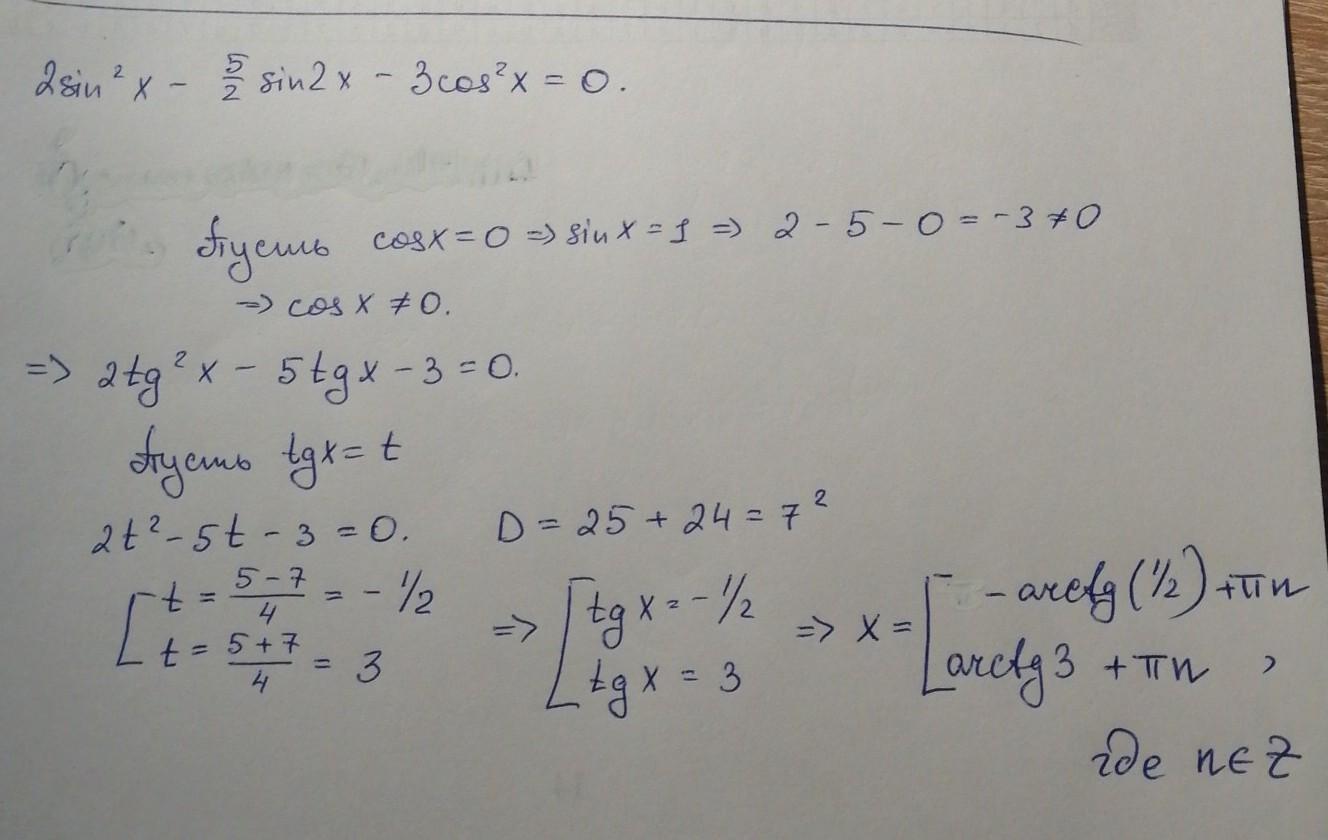 2sin²x - 5/2 sin2x - 3cos²x = 0.
Пусть cosx = 0 => sinx = 1 => 2 - 5 - 0 = -3 ≠ 0
=> cosx ≠ 0.
=> 2tg²x - 5tgx - 3 = 0.
Пусть tgx = t
2t² - 5t - 3 = 0. D = 25 + 24 = 7²
[ t = (5-7)/4 = -1/2 => [ tgx = -1/2 => x = [ -arctg(1/2) + πn
t = (5+7)/4 = 3 tgx = 3 arctg3 + πn ,
где n ∈ Z